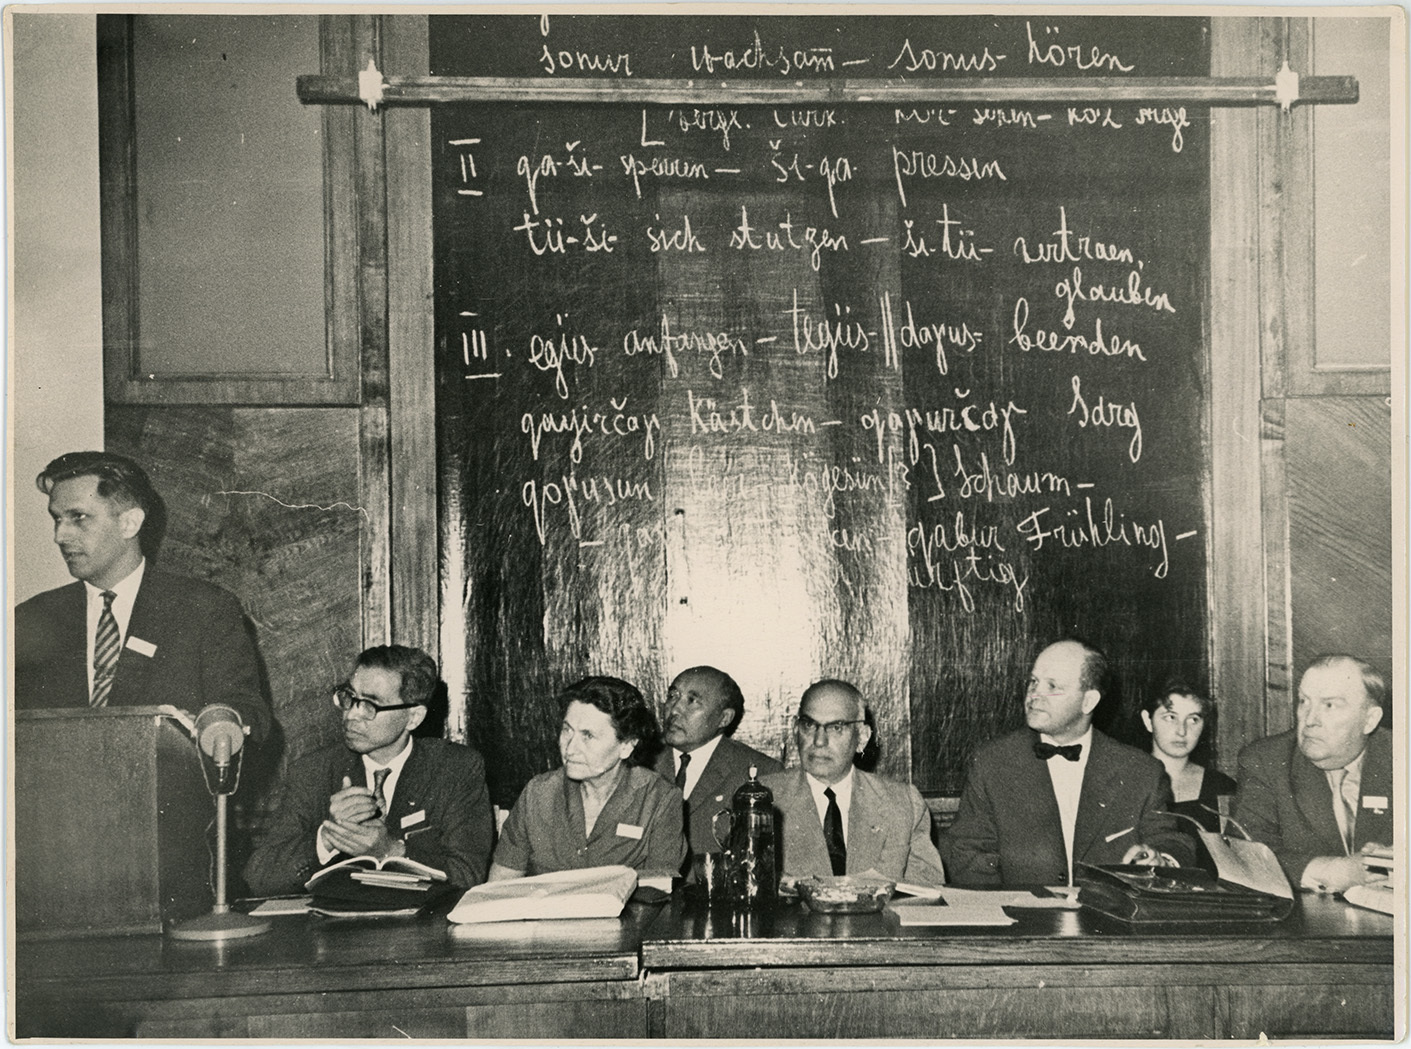 sonur wachsam – sonus- hören
[vergl. türk.
II qa-ši- sperren – ši-qa- pressen
tü-ši- sich stutzen – ši-tü- vertraen,
glauben
III. egüs- anfangen – tegüs- || dayus- beenden
qayirčaγ Kästchen – qayurčaγ Sarg
qoyusun leer – kögesün [?] Schaum –
– qabur Frühling –